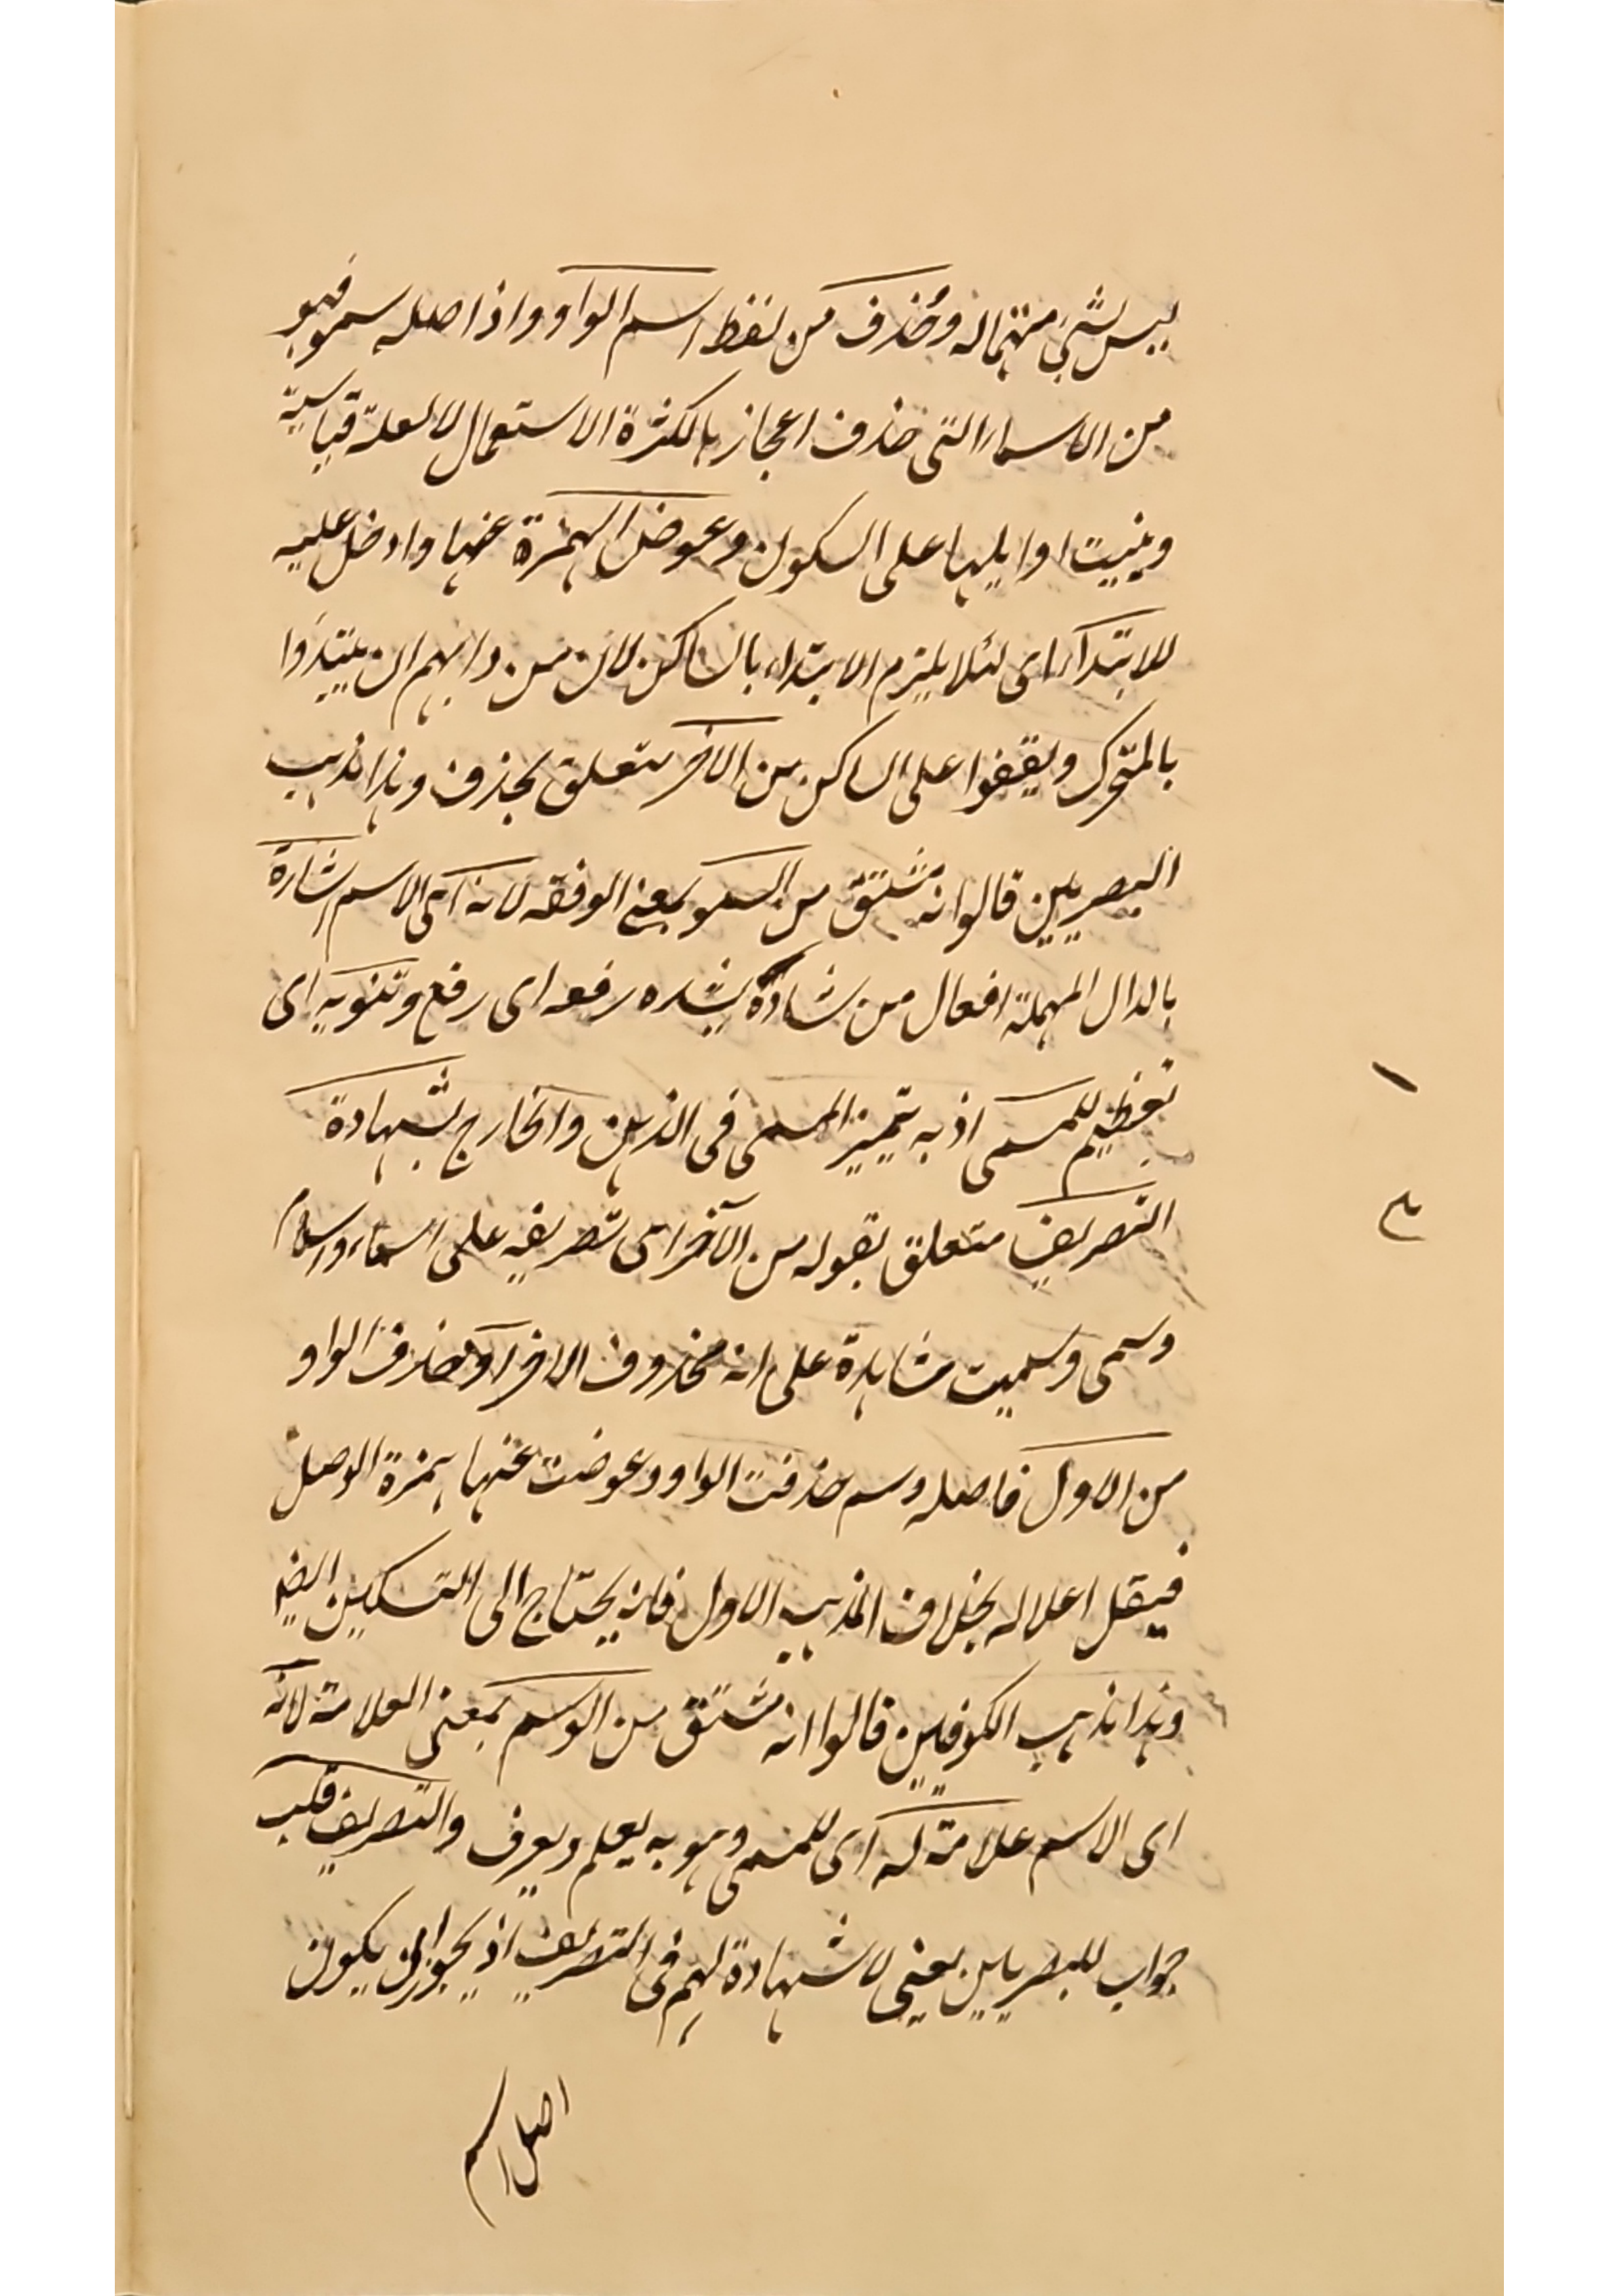 ليس بشئ منتهاله وحُذف من لفظ اسم الواو واذا اصله سمو فهو
من الاسماء التى حذف اعجازها لكثرة الاستعمال لا لعلة قياسية
وبنيت اوايلها على السكون وعوض الهمزة عنها وادخل عليه
للابتداء اى لئلا يلزم الابتداء بالساكن لان من دابهم ان يبتدؤا
بالمتحرك ويقفوا على الساكن من الآخر متعلق بحذف وهذا مذهب
البصريين قالوا انه مشتق من السمو بمعنى الوفقه لانه اى الاسم اشادة
بالدال المهملة افعال من شاده يشده رفعه اى رفع وتنويه اى
تعظيم للمسمى اذ به يتميز المسمى فى الذهن والخارج بشهادة
التصريف متعلق بقوله من الآخر اى تصريفه على اسماء واسام
وسمى وسميت شاهدة على انه محذوف الاخر او حذف الواو
من الاول فاصله وسم حذفت الواو وعوضت عنها همزة الوصل
فيقل اعلاله بخلاف المذهب الاول فانه يحتاج الى التسكين ايضا
وهذا مذهب الكوفيين قالوا انه مشتق من الوسم بمعنى العلامة لانه
اى الاسم علامة له اى للمسمى وهو به يعلم ويعرف والتصريف قلب
جواب للبصريين يعنى لا شهادة لهم فى التصريف اذ يجوز ان يكون
اصل اسم